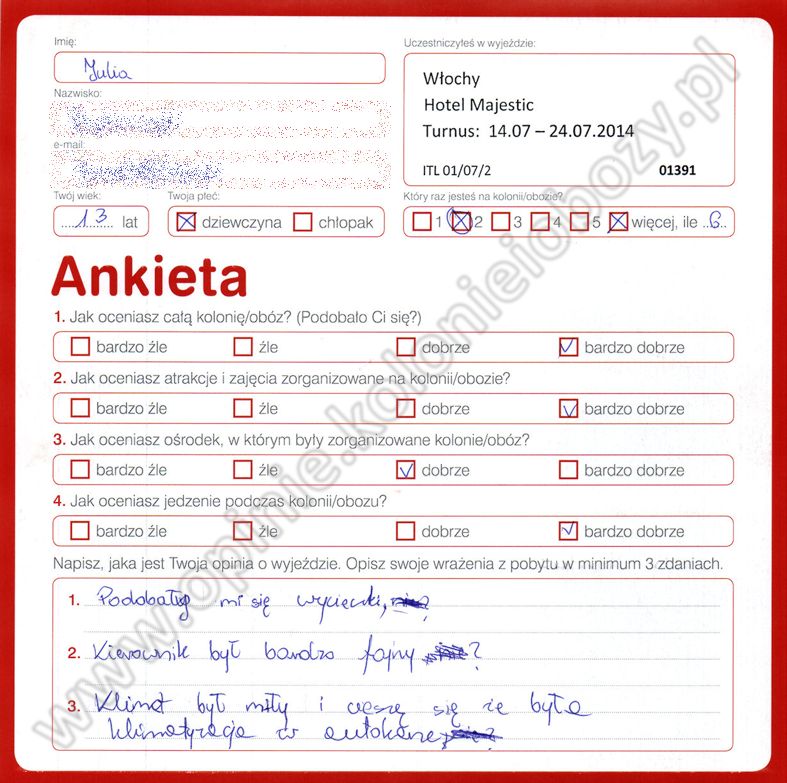 Imię:
Julia
Nazwisko:
e-mail:
Twój wiek:
13 lat
Twoja płeć:
dziewczyna chłopak
Uczestniczyłeś w wyjeździe:
Włochy
Hotel Majestic
Turnus: 14.07 – 24.07.2014
ITL 01/07/2 01391
Który raz jesteś na kolonii/obozie?
1 2 3 4 5 więcej, ile 6
Ankieta
1. Jak oceniasz całą kolonię/obóz? (Podobało Ci się?)
bardzo źle źle dobrze bardzo dobrze
2. Jak oceniasz atrakcje i zajęcia zorganizowane na kolonii/obozie?
bardzo źle źle dobrze bardzo dobrze
3. Jak oceniasz ośrodek, w którym były zorganizowane kolonie/obóz?
bardzo źle źle dobrze bardzo dobrze
4. Jak oceniasz jedzenie podczas kolonii/obozu?
bardzo źle źle dobrze bardzo dobrze
Napisz, jaka jest Twoja opinia o wyjeździe. Opisz swoje wrażenia z pobytu w minimum 3 zdaniach.
1. Podobały mi się wycieczki,
2. Kierownik był bardzo fajny ?
3. Klimat był miły i cieszę się że była
klimatyzacja w autokarze ?
www.opinie.kolonieiobozy.pl